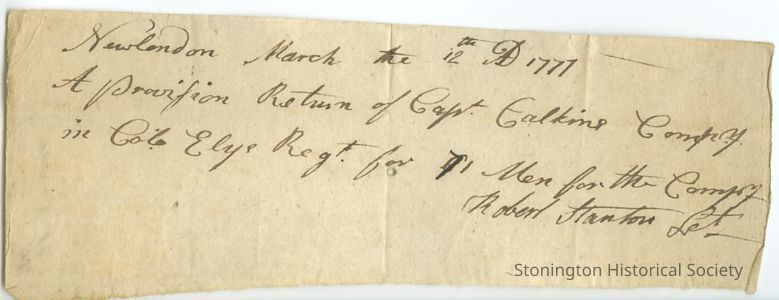 Newlondon March the 12th AD 1777
A provision Return of Capt. Calkins Compy
in Colo Elys Regt. for 71 Men for the Compy
Robert Stanton Lt
Stonington Historical Society